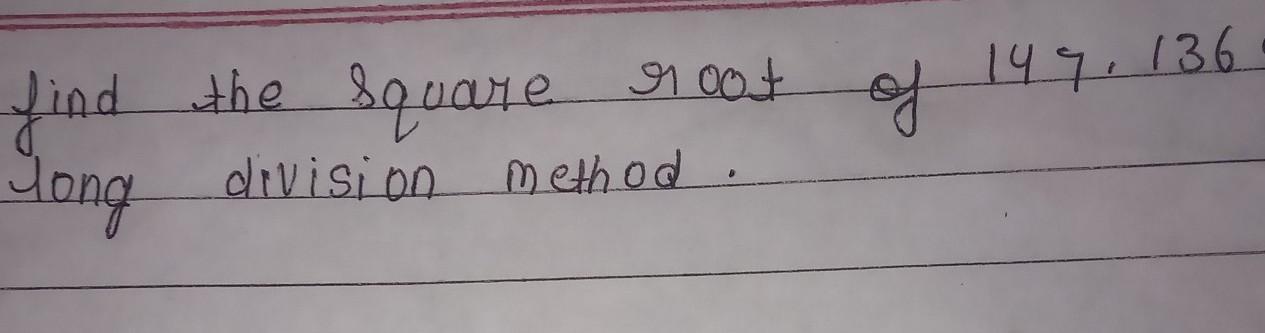 find the square root of 147.136
long division method.